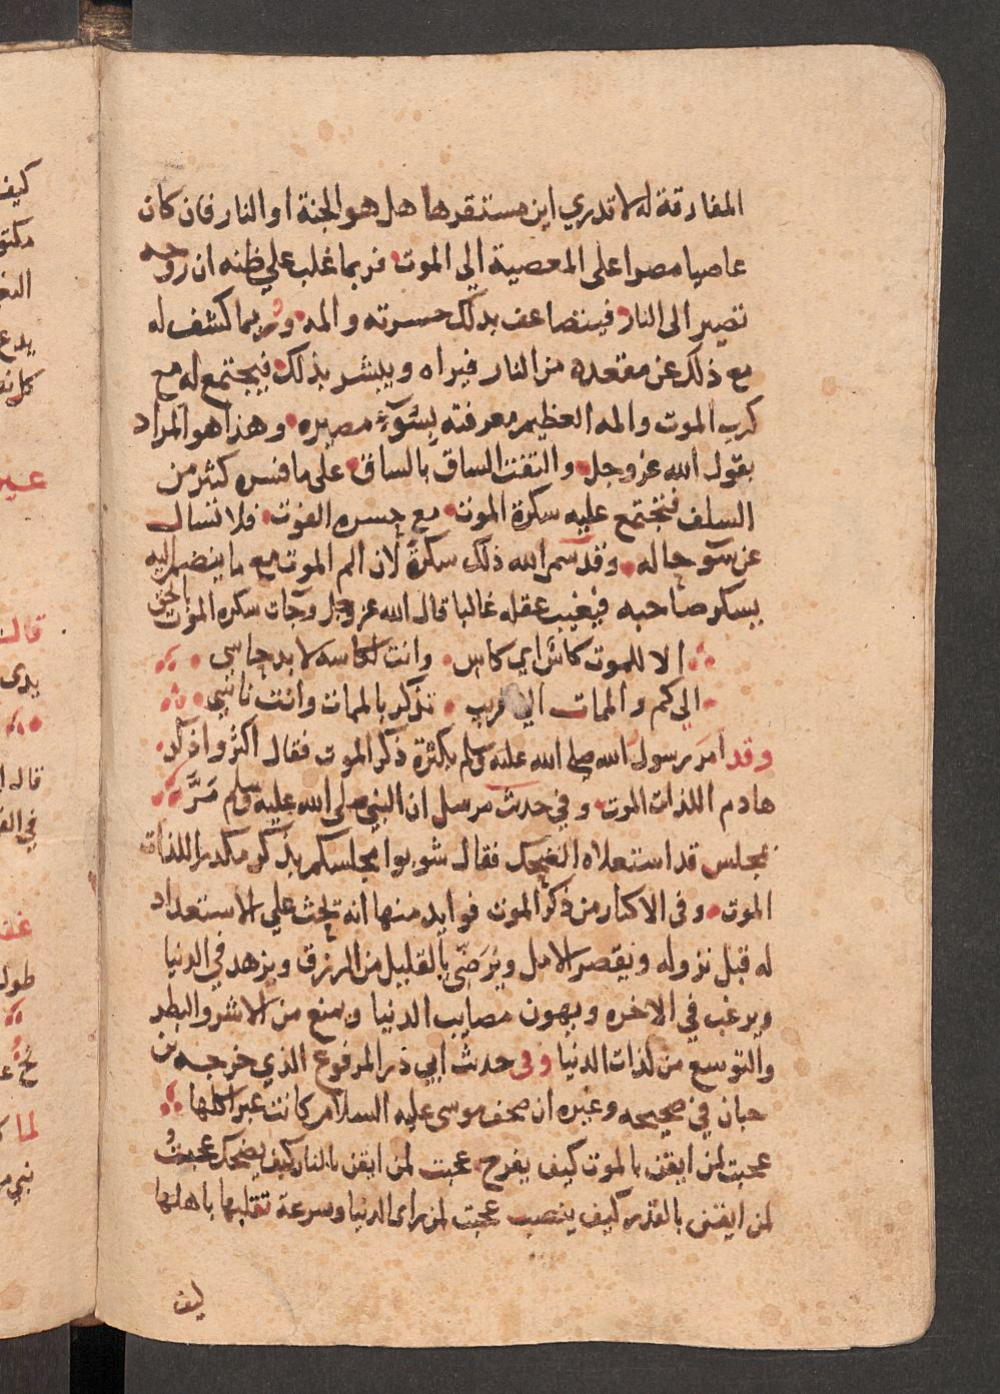 المفارقة له لا تدري اين مستقرها هل هو الجنة او النار فان كان
عاصيا مصرا على المعصية الي الموت فربما غلب علي ظنه ان روحه
تصير الى النار فيتضاعف بذلك حسرته والمه وربما كشف له
مع ذلك عن مقعده من النار فيراه ويبشر بذلك فيجتمع له مع
كرب الموت والمه العظيم معرفته بسوء مصيره وهذا هو المراد
بقول الله عز وجل والتفت الساق بالساق على ما فسره كثير من
السلف فتجتمع عليه سكرة الموت مع حسره الفوت فلا تسال
عن سو حاله وقد سمى الله ذلك سكرة لان الم الموت مع ما ينضم اليه
يسكر صاحبه فيغيب عقله غالبا قال الله عز وجل وجآت سكره الموت بالحق
الا للموت كاس اي كاس وانت لكاسه لا بد حاسي
الي كم والممات الي قريب تذكر بالممات وانت ناسي
وقد امر رسول الله صلي الله عليه وسلم بكثرة ذكر الموت فقال اكثروا ذكر
هادم اللذات الموت وفي حدث مرسل ان النبي صلى الله عليه وسلم مَرَّ
بمجلس قد استعلاه الضحك فقال شوبوا مجلسكم بذكر مكدر اللذات
الموت وفي الاكثار من ذكر الموت فوايد منها انه يحث علي الاستعداد
له قبل نزوله ويقصر الامل ويُرَضّي بالقليل من الرزق ويزهد في الدنيا
ويرغب في الاخره ويهون مصايب الدنيا ويمنع من الاشر والبطر
والتوسع من لذات الدنيا وفى حدث ابي ذر المرفوع الذي خرجه بن
حبان في صحيحه وغيره ان صحف موسى عليه السلام كانت عبرا كلها
عجبت لمن ايقن بالموت كيف يفرح عجبت لمن ايقن بالنار كيف يضحك عجبتُ
لمن ايقن بالقدر كيف ينصب عجبت لمن راى الدنيا وسرعة تقلبها باهلها
كيف